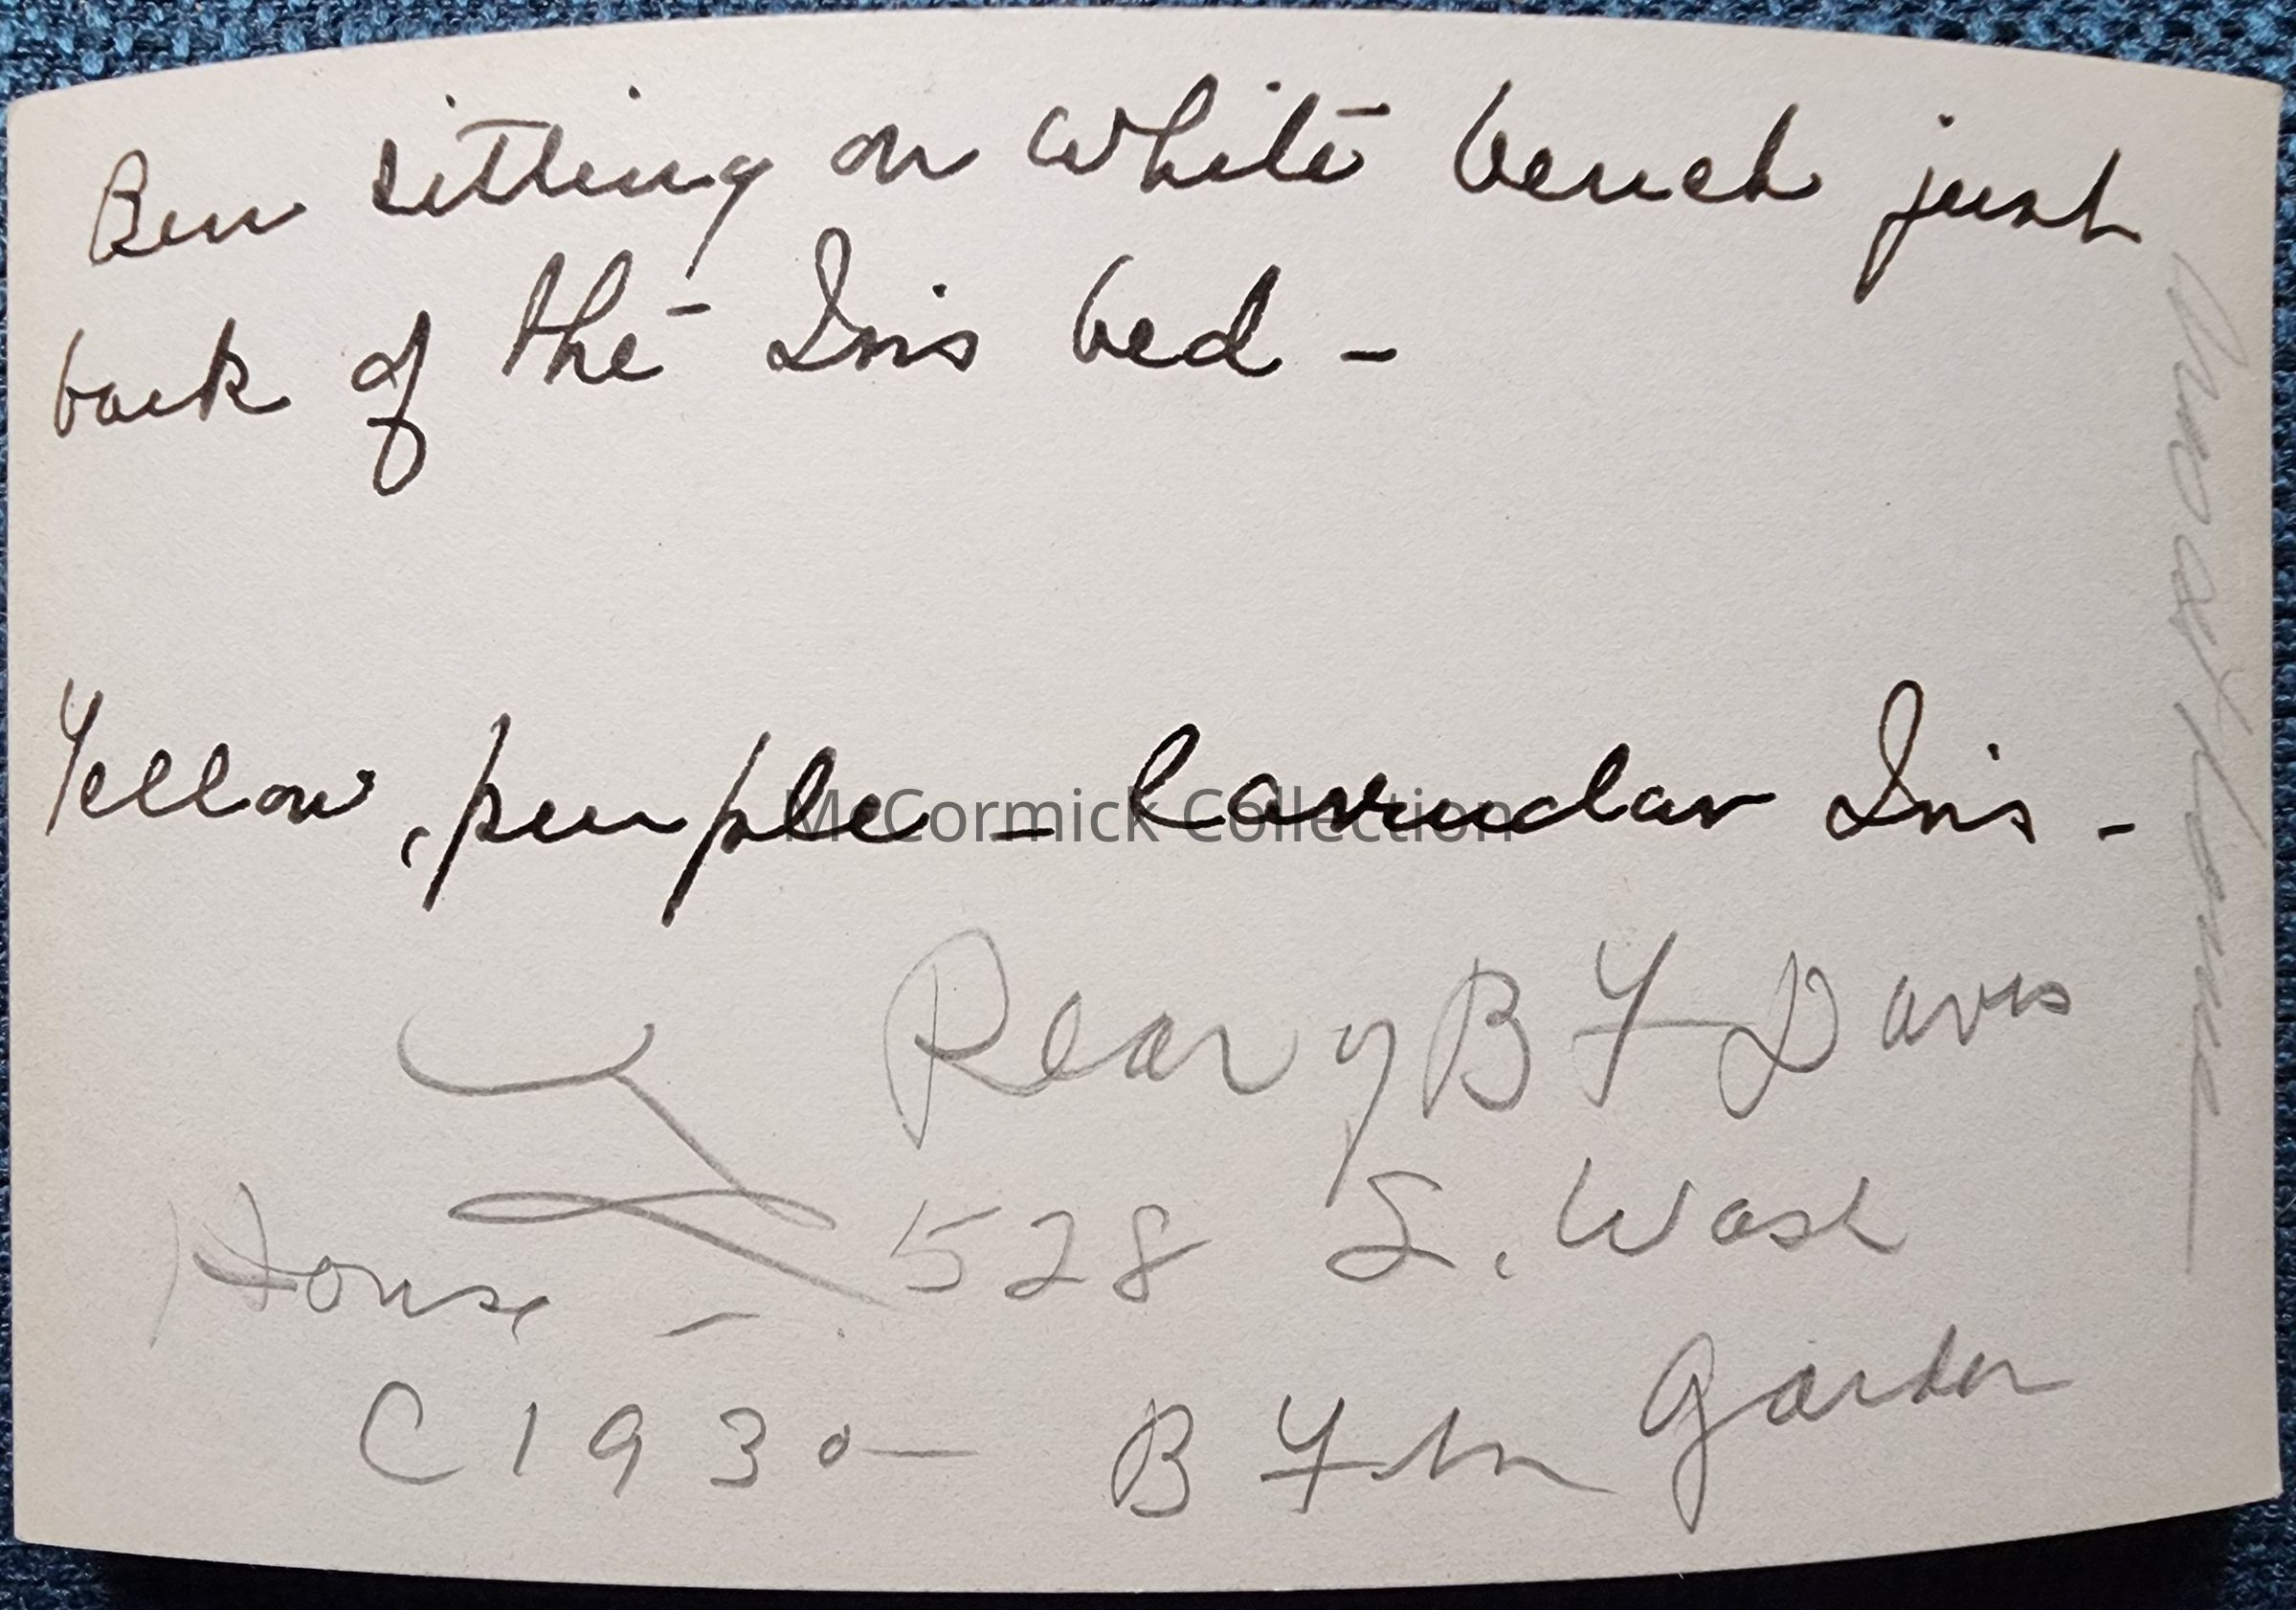 Ben sitting on white bench just
back of the Iris bed -
Yellow, purple - lavendar Iris -
McCormick Collection
Rear of B F Davis
House - 528 S. Wash
C 1930 - B F in Garden
at Home